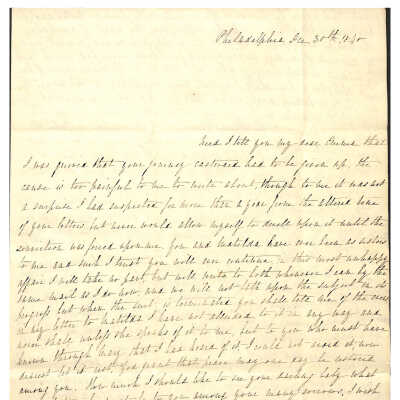 Philadelphia Dec 30th, 40
Need I tell you my dear Emma that
I was grieved that your journey eastward had to be given up, the
cause is too painful to me to write about, though to me it was not
a surprise I had suspected for more than a year from the altered tone
of your letters but never would allow myself to dwell upon it until the
conviction was forced upon me. you and Matilda have ever been as sisters
to me and such I trust you will ever continue, in this most unhappy
affair I will take no part but will write to both whenever I can by the
same mail as I do now and we will not
progress but when the suit is terminated you shall tell me of the
in my letter to Matilda I have not alluded to it in any way and
never shall unless she speaks of it to me, but to you who must have
known through Mary that I had heard of it I could not avoid it, now
dearest let it rest. God grant that peace may one day be restored
among you. How much I should like to see your darling baby what
to you among your many sorrows, I wish